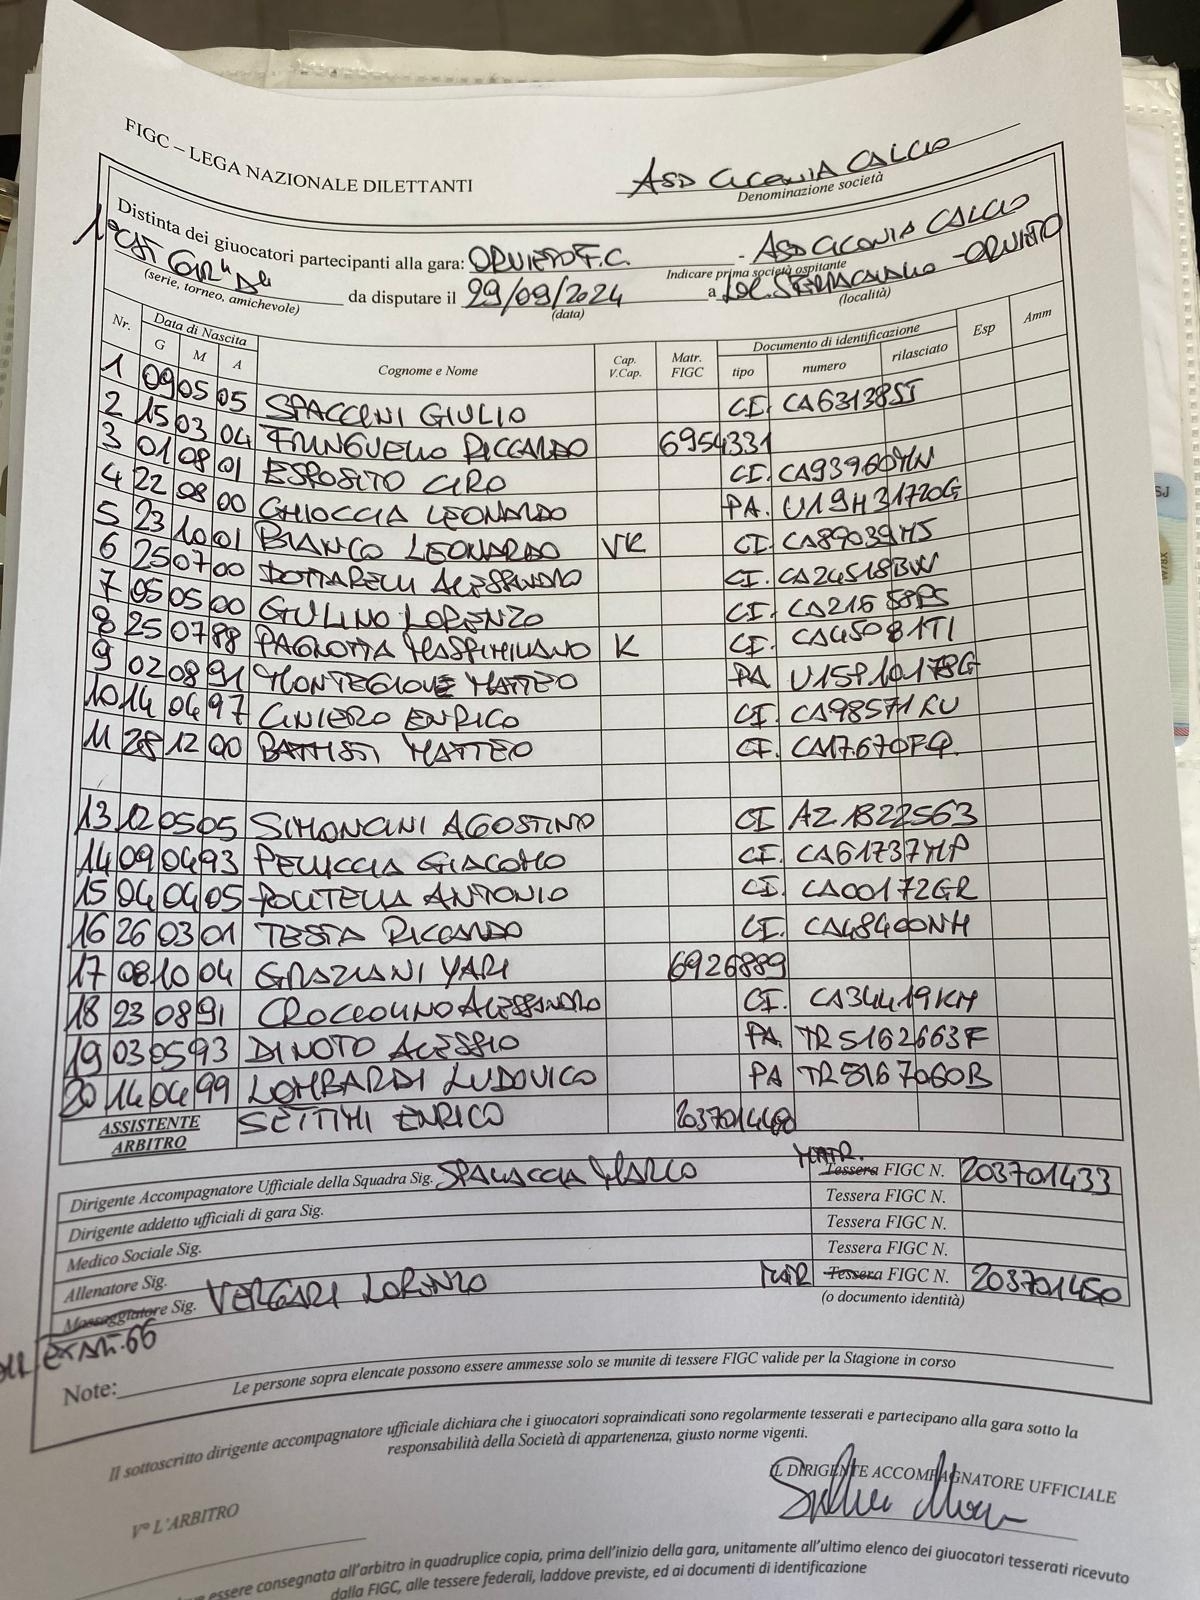 FIGC – LEGA NAZIONALE DILETTANTI
ASD CICONIA CALCIO
Denominazione società
Distinta dei giuocatori partecipanti alla gara: ORVIETO F.C. - ASD CICONIA CALCIO
Indicare prima società ospitante
1° CAT
(serie, torneo, amichevole)
da disputare il 29/09/2024 a LOC. - ORVIETO
(data) (località)
Nr. Data di Nascita Cognome e Nome Cap. V.Cap. Matr. FIGC Documento di identificazione Esp Amm
G M A tipo numero rilasciato
1 09 05 05 SPACCINI GIULIO CI. CA63138SI
2 15 03 04 FRINGUELLO RICCARDO 6954331
3 01 08 01 ESPOSITO CIRO CI. CA93960MN
4 22 08 00 GHIOCCIA LEONARDO PA. U19H31720G
5 23 10 01 BIANCO LEONARDO VK CI. CA89039MJ
6 25 07 00 BOTTARELLI ALESSANDRO CI. CA24518BW
7 05 05 00 GIULINO LORENZO CI. CA21658PS
8 25 07 88 PAGNOTTA MASSIMILIANO K CI. CA45081TI
9 02 08 91 MONTEGIOVE MATTEO PA U15P10178G
10 14 04 97 CINIERO ENRICO CI. CA98571RU
11 28 12 00 BATTISTI MATTEO CI. CA17670FQ.
13 12 05 05 SIMONCINI AGOSTINO CI AZ1822563
14 09 04 93 PELLICCIA GIACOMO CI. CA61737MP
15 04 04 05 POLITELLA ANTONIO CI. CA00172GR
16 26 03 01 TESTA RICCARDO CI. CA48400NH
17 08 10 04 GRAZIANI YARI 6926889
18 23 08 91 CROCCOLINO ALESSANDRO CI. CA34419KM
19 03 05 93 DI NOTO ALESSIO PA TR5162663F
20 14 04 99 LOMBARDI LUDOVICO PA TR5167060B
ASSISTENTE ARBITRO SETTIMI ENRICO 203701440
Dirigente Accompagnatore Ufficiale della Squadra Sig. SPALACCIA MARCO MATR. Tessera FIGC N. 203701433
Dirigente addetto ufficiali di gara Sig. Tessera FIGC N.
Medico Sociale Sig. Tessera FIGC N.
Allenatore Sig. Tessera FIGC N.
Massaggiatore Sig. VERGARI LORENZO MATR Tessera FIGC N. 203701450
(o documento identità)
ALL. EX ART. 66
Note:
Le persone sopra elencate possono essere ammesse solo se munite di tessere FIGC valide per la Stagione in corso
Il sottoscritto dirigente accompagnatore ufficiale dichiara che i giuocatori sopraindicati sono regolarmente tesserati e partecipano alla gara sotto la
responsabilità della Società di appartenenza, giusto norme vigenti.
IL DIRIGENTE ACCOMPAGNATORE UFFICIALE
V° L'ARBITRO
essere consegnata all'arbitro in quadruplice copia, prima dell'inizio della gara, unitamente all'ultimo elenco dei giuocatori tesserati ricevuto
dalla FIGC, alle tessere federali, laddove previste, ed ai documenti di identificazione